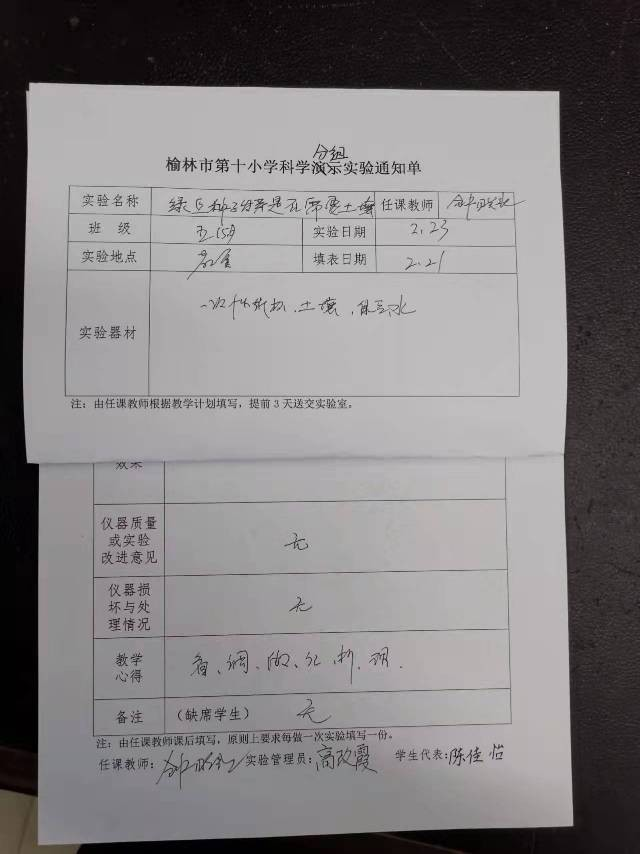 分组
榆林市第十小学科学演示实验通知单
实验名称 绿豆种子分芽是否需要土壤 任课教师
班 级 实验日期 2.23
实验地点 填表日期 2.21
实验器材 一次性纸杯、土壤、绿豆、水
注：由任课教师根据教学计划填写，提前3天送交实验室。
效果
仪器质量
或实验
改进意见 无
仪器损
坏与处
理情况 无
教学
心得 看、调、做、
备注 （缺席学生） 无
注：由任课教师课后填写，原则上要求每做一次实验填写一份。
任课教师： 实验管理员：高改霞 学生代表：陈佳怡